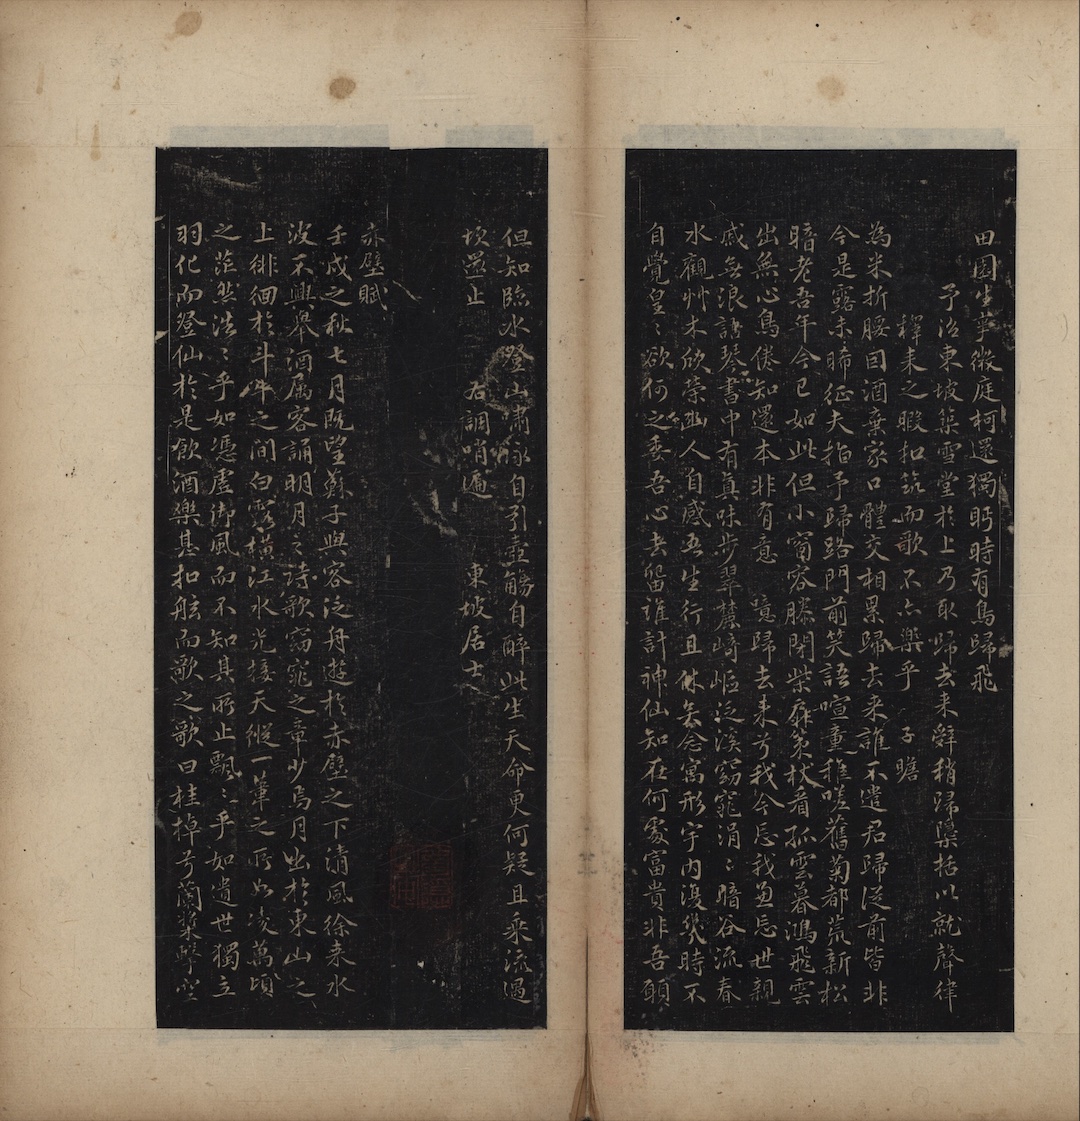 田園生事微庭柯還獨眄時有鳥歸飛
予治東坡築雪堂於上乃取歸去來辭稍歸檃括以就聲律
釋耒之暇扣筑而歌不亦樂乎　子瞻
為米折腰因酒棄家口體交相累歸去來誰不遣君歸從前皆非
今是露未晞征夫指予歸路門前笑語喧童稚嗟舊菊都荒新松
暗老吾年今已如此但小窗容膝閉柴扉策杖看孤雲暮鴻飛雲
出無心鳥倦知還本非有意　噫歸去來兮我今忘我兼忘世親
戚無浪語琴書中有真味步翠麓崎嶇泛溪窈窕涓〻暗谷流春
水觀艸木欣榮幽人自感吾生行且休矣念寓形宇內復幾時不
自覺皇〻欲何之委吾心去留誰計神仙知在何處富貴非吾願
但知臨水登山嘯詠自引壺觴自醉此生天命更何疑且乘流遇
坎還止
右調哨遍　東坡居士
赤壁賦
壬戌之秋七月既望蘇子與客泛舟遊於赤壁之下清風徐來水
波不興舉酒屬客誦明月之詩歌窈窕之章少焉月出於東山之
上徘徊於斗牛之間白露橫江水光接天縱一葦之所如凌萬頃
之茫然浩〻乎如憑虛御風而不知其所止飄〻乎如遺世獨立
羽化而登仙於是飲酒樂甚扣舷而歌之歌曰桂棹兮蘭槳擊空